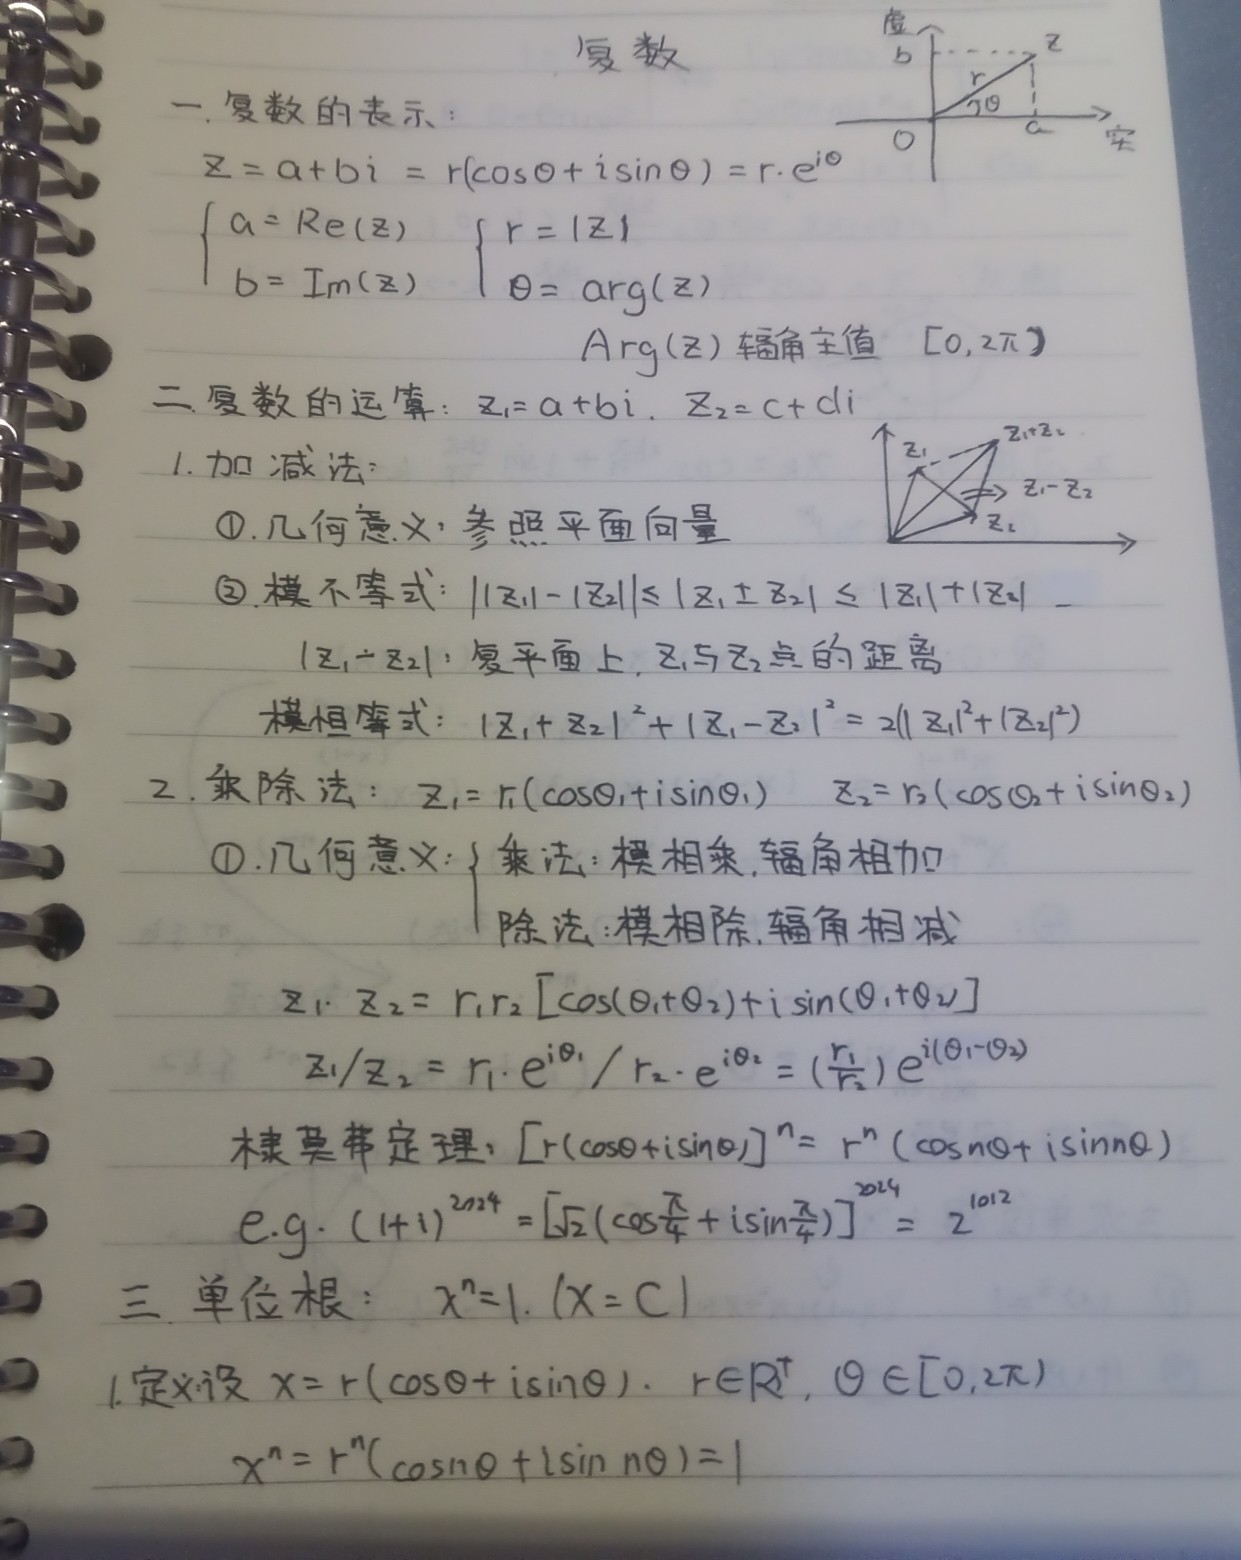 复数
虚
b z
r
θ
O a 实
一.复数的表示:
z = a+bi = r(cosθ+isinθ) = r·e^{iθ}
{ a = Re(z) { r = |z|
b = Im(z) θ = arg(z)
Arg(z) 辐角主值 [0,2π)
二.复数的运算: z₁=a+bi. z₂=c+di
1.加减法:
z₁ z₁+z₂
z₁-z₂
z₂
①.几何意义: 参照平面向量
②.模不等式: ||z₁|-|z₂|| ≤ |z₁±z₂| ≤ |z₁|+|z₂|
|z₁-z₂|: 复平面上, z₁与z₂点的距离
模恒等式: |z₁+z₂|²+|z₁-z₂|² = 2(|z₁|²+|z₂|²)
2.乘除法: z₁=r₁(cosθ₁+isinθ₁) z₂=r₂(cosθ₂+isinθ₂)
①.几何意义: { 乘法: 模相乘,辐角相加
除法:模相除,辐角相减
z₁·z₂ = r₁r₂[cos(θ₁+θ₂)+isin(θ₁+θ₂)]
z₁/z₂ = r₁·e^{iθ₁}/r₂·e^{iθ₂} = (r₁/r₂)e^{i(θ₁-θ₂)}
棣莫弗定理: [r(cosθ+isinθ)]ⁿ = rⁿ(cosnθ+isinnθ)
e.g. (1+i)^{2024} = [√2(cosπ/4+isinπ/4)]^{2024} = 2^{1012}
三.单位根: xⁿ=1. (x=C)
1.定义:设 x=r(cosθ+isinθ). r∈R⁺, θ∈[0,2π)
xⁿ=rⁿ(cosnθ+isin nθ)=1